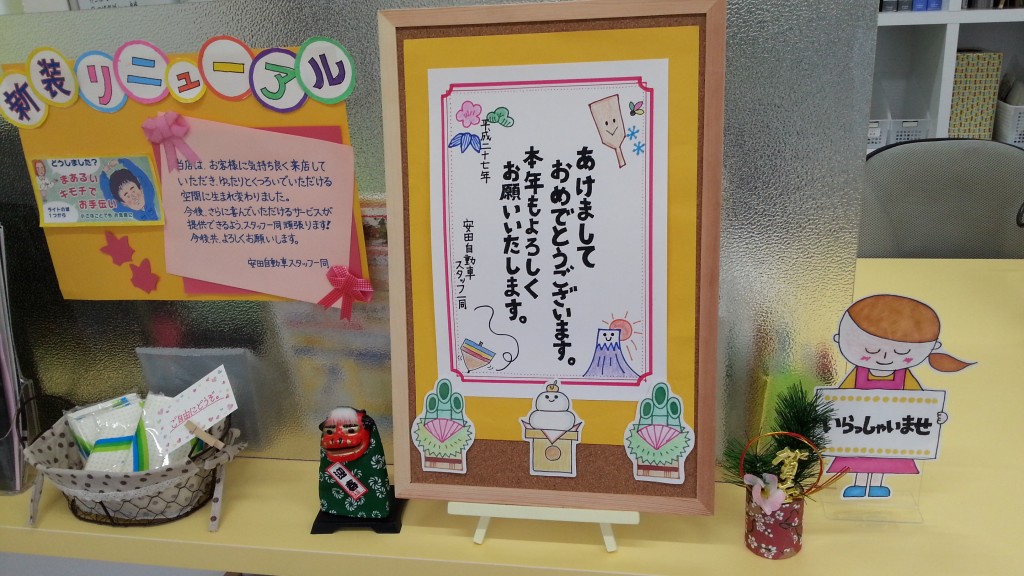 新装リニューアル
どうしました?
まあるい
キモチで
お手伝い
当店は、お客様に気持ち良く来店して
いただき、ゆったりとくつろいでいただける
空間に生まれ変わりました。
今後、さらに喜んでいただけるサービスが
提供できるよう、スタッフ一同頑張ります!
今後共、よろしくお願いします。
安田自動車スタッフ一同
ご自由にどうぞ。
あけまして
おめでとうございます。
本年もよろしく
お願いいたします。
平成二十七年
安田自動車
スタッフ一同
いらっしゃいませ